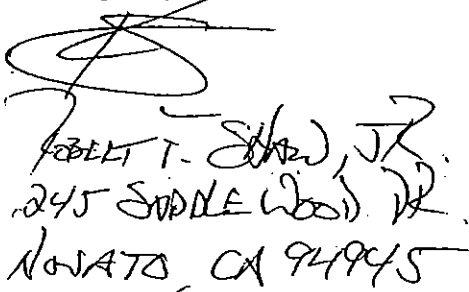 ROBERT T. SHAW, JR.
245 SADDLE WOOD DR.
NOVATO, CA 94945